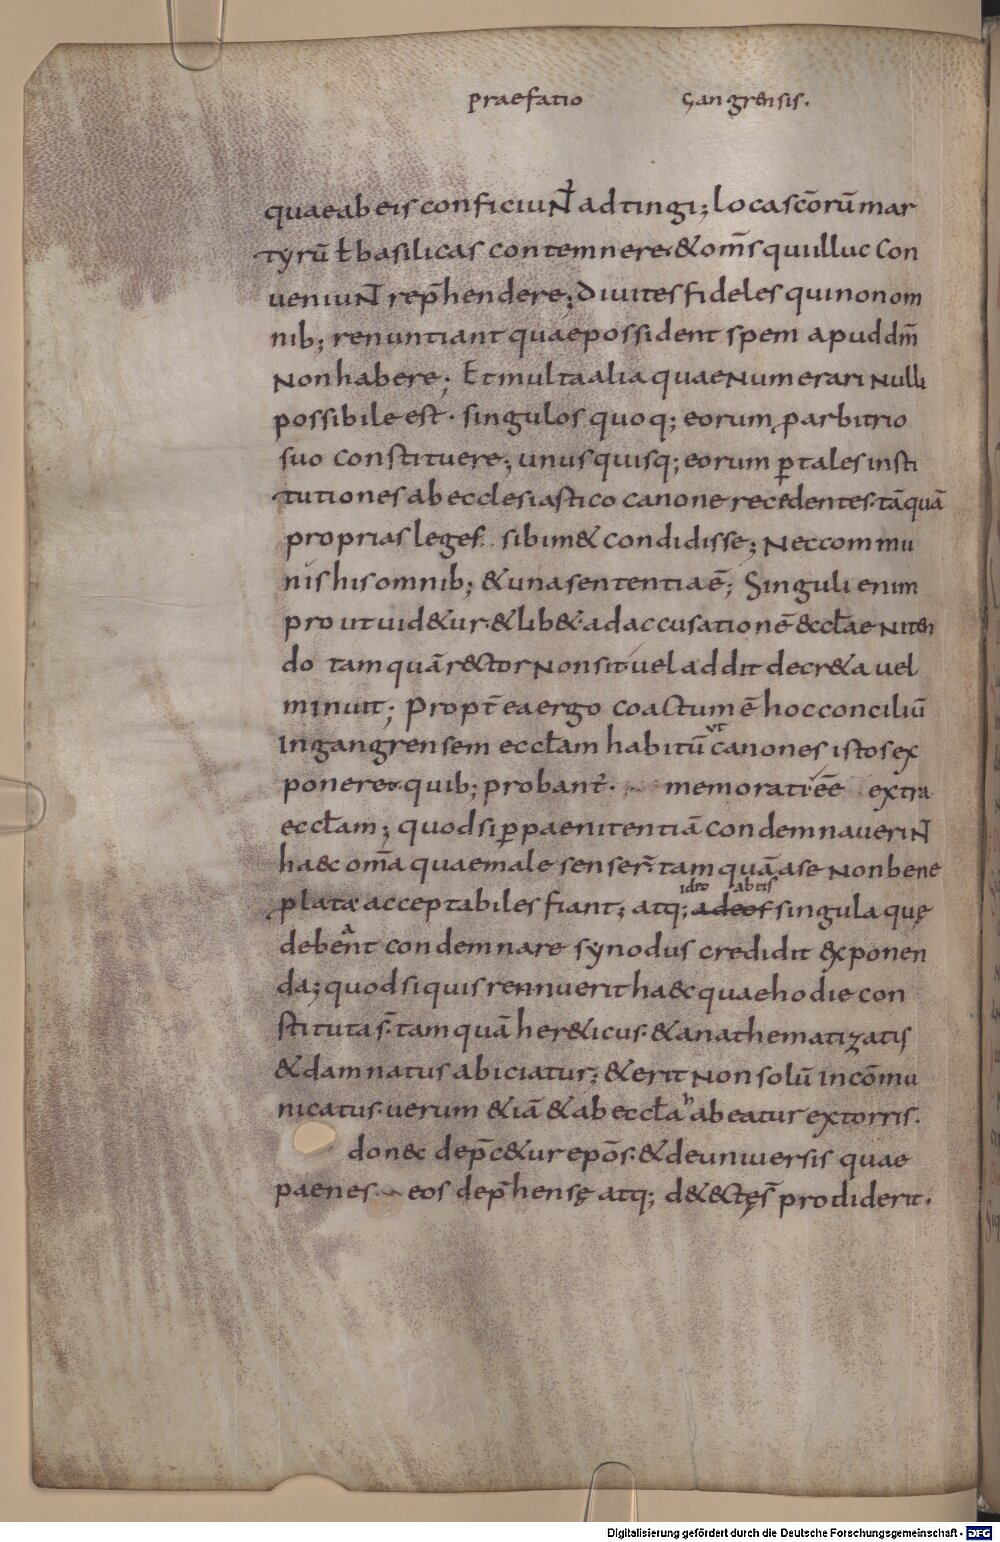 praefatio gangrensis.
quae ab eis conficiuNT̄ adtingi; loca scōrū mar
tyrū ƚ basilicas contemnere. & om̄s qui illuc con
ueniuNT rep̄hendere; Diuites fideles qui non om
nib; renuntiant quae possident spem apud dm̄
Non habere; Et multa alia quae Numerari Nulli
possibile est. singulos quoq; eorum ꝑ arbitrio
suo constituere; unusquisq; eorum ꝑ tales insti
tutiones ab ecclesiastico canone recedentes. tāquā
proprias leges sibim& condidisse; Nec commu
nis his omnib; & una sententia ē; Singuli enim
pro ut uid&ur. & lib&. ad accusationē eccƚae Niten
do tamquā rector Non sit uel addit decr&a uel
minuit; Propt̄ea ergo coactum ē hoc conciliū
In gangrensem eccƚam habitū ut canones istos ex
ponere. quib; probant̄. memorati ēē extra
eccƚam; quod si ꝑ paenitentiā condemnaueriNT
haec om̄a quae male senser̄. tamquā a se Non bene
ideo ab eis
plata acceptabiles fiant; atq; adeos singula quę
debeant condemnare synodus credidit exponen
da; quod si quis rennuerit haec quae hodie con
stituta s̄. tamquā her&icus. & anathematizatis
& damnatus abiciatur; & erit Non solū incōmu
nicatus. uerum &iā & ab eccƚa habeatur extorris.
donec dep̄c&ur epōs. & de uniuersis quae
paenes eos dep̄hensę atq; d&ectę s̄ prodiderit.
Digitalisierung gefördert durch die Deutsche Forschungsgemeinschaft - DFG